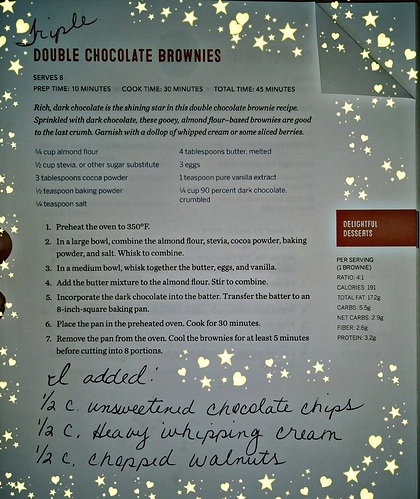 Triple
DOUBLE CHOCOLATE BROWNIES
SERVES 8
PREP TIME: 10 MINUTES COOK TIME: 30 MINUTES TOTAL TIME: 45 MINUTES
Rich, dark chocolate is the shining star in this double chocolate brownie recipe.
Sprinkled with dark chocolate, these gooey, almond flour–based brownies are good
to the last crumb. Garnish with a dollop of whipped cream or some sliced berries.
cup almond flour
½ cup stevia, or other sugar substitute
3 tablespoons cocoa powder
½ teaspoon baking powder
¼ teaspoon salt
4 tablespoons butter, melted
3 eggs
1 teaspoon pure vanilla extract
¼ cup 90 percent dark chocolate,
crumbled
1. Preheat the oven to 350°F.
2. In a large bowl, combine the almond flour, stevia, cocoa powder, baking
powder, and salt. Whisk to combine.
3. In a medium bowl, whisk together the butter, eggs, and vanilla.
4. Add the butter mixture to the almond flour. Stir to combine.
5. Incorporate the dark chocolate into the batter. Transfer the batter to an
8-inch-square baking pan.
6. Place the pan in the preheated oven. Cook for 30 minutes.
7. Remove the pan from the oven. Cool the brownies for at least 5 minutes
before cutting into 8 portions.
DELIGHTFUL
DESSERTS
PER SERVING
(1 BROWNIE)
RATIO: 4:1
CALORIES: 191
TOTAL FAT: 17.2g
CARBS: 5.5g
NET CARBS: 2.9g
FIBER: 2.6g
PROTEIN: 3.2g
I added:
1/2 c. unsweetened chocolate chips
1/2 c. Heavy whipping cream
1/2 c. chopped walnuts